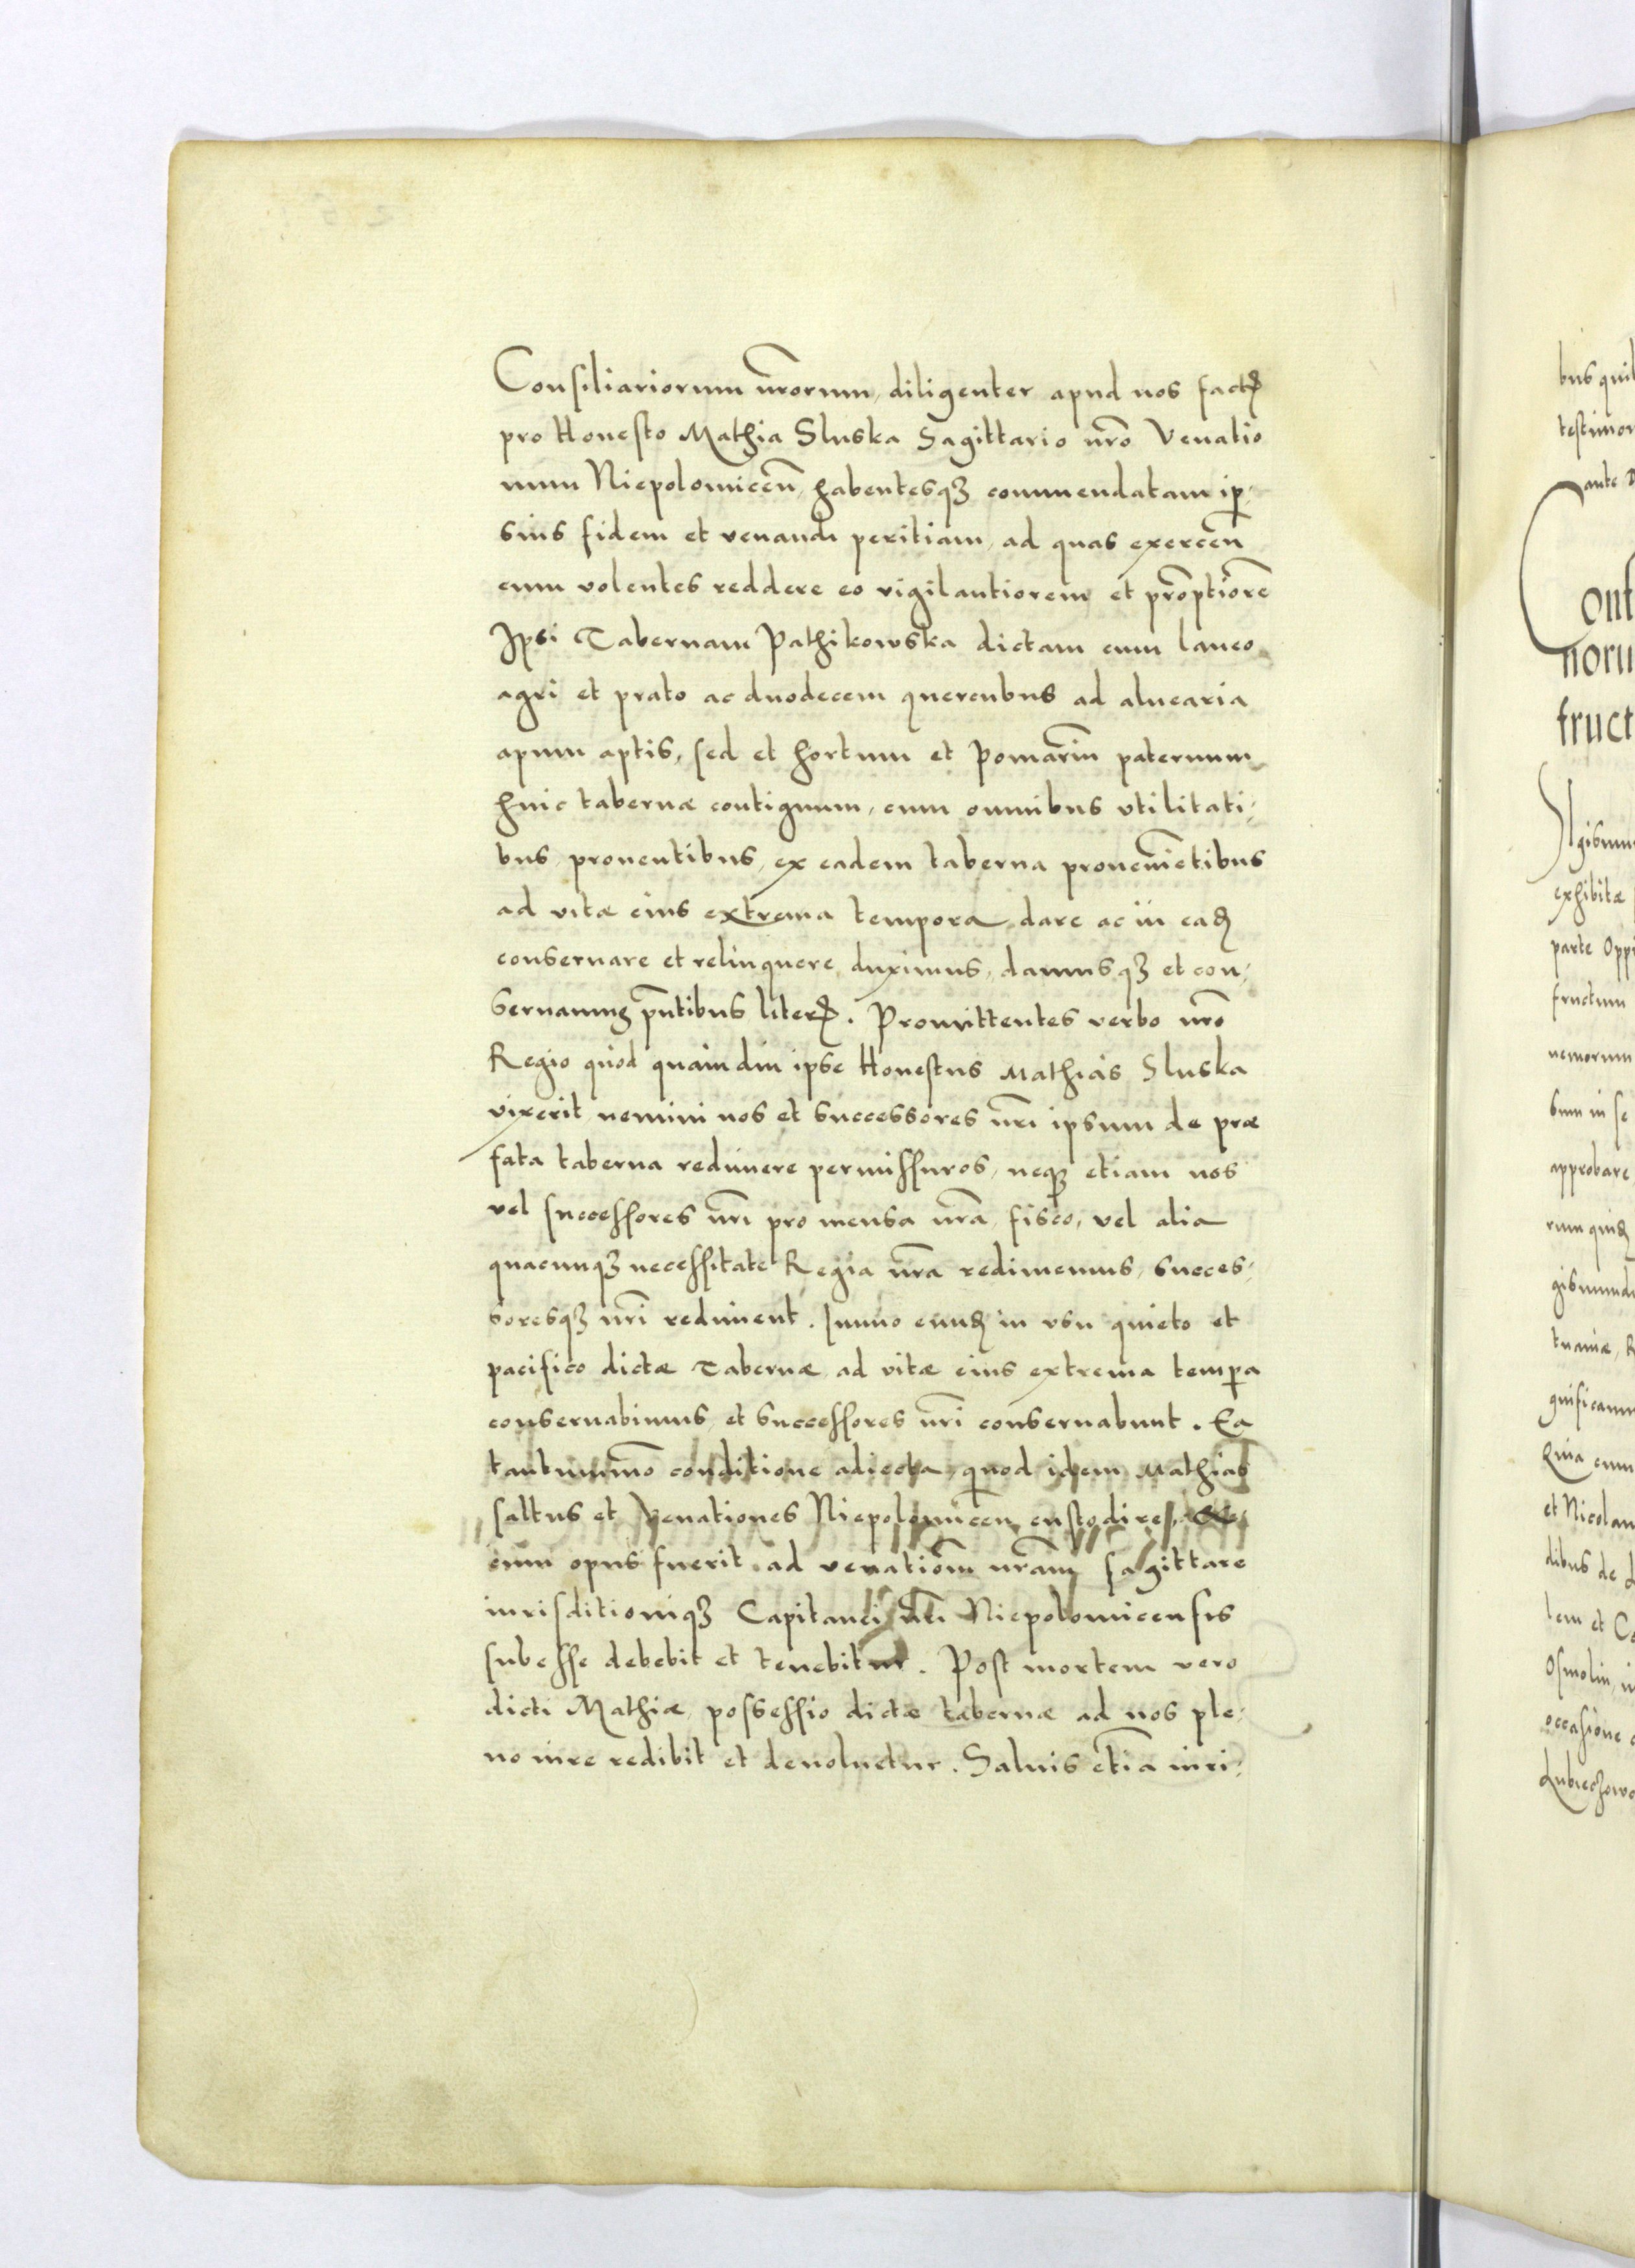 Consiliariorum nr̃orum, diligenter apud nos factꝭ
pro Honesto Mathia Sluska Sagittario nr̃o Venatio
num Niepolomiceñ, habentesqꝫ commendatam ip,
sius fidem et venandi peritiam, ad quas exerceñ
eum volentes reddere eo vigilantiorem et prõptiorẽ
Ipsi Tabernam Pathikowska dictam cum laneo
agri et prato ac duodecem quercubus ad aluearia
apum aptis, sed et hortum et Pomariũ paternum
huic tabernæ contiguum, cum omnibus vtilitati,
bus, prouentibus, ex eadem taberna proueniẽtibus
ad vitæ eius extrema tempora dare ac in eadꝫ
conseruare et relinquere duximus, damusqꝫ et con,
seruamus pñtibus literꝭ. Promittentes verbo nr̃o
Regio quod quamdiu ipse Honestus Mathias Sluska
vixerit nemini nos et successores nr̃i ipsum de præ
fata taberna redimere permissuros, neqꝫ etiam nos
vel successores nr̃i pro mensa nr̃a, fisco, vel alia
quacunqꝫ necessitate Regia nr̃a redimemus, succes,
soresqꝫ nr̃i rediment. Immo eundꝫ in vsu quieto et
pacifico dictæ Tabernæ ad vitæ eius extrema temꝑa
conseruabimus, et successores nr̃i conseruabunt. Ea
tantummõ conditione adiecta, quod idem Mathias
saltus et Venationes Niepolomiceñ custodire,
cum opus fuerit ad venatiõm nr̃am sagittare
iurisditioniqꝫ Capitanei nr̃i Niepolomicensis
subesse debebit et tenebitur. Post mortem vero
dicti Mathiæ, possessio dictæ tabernæ ad nos ple,
no iure redibit et deuoluetur. Saluis etiã iuri,
bus
testimon
ante
Conf
noru
fruct
exhibitæ
parte Oppi
fructum
nemorum
sum in se
approbare
rum quidꝫ
gismund
tuaniæ, R
gnificam
Quia cum
et Nicolau
dibus de
lem et Ca
Osmolin,
occasione
Lubiechowo